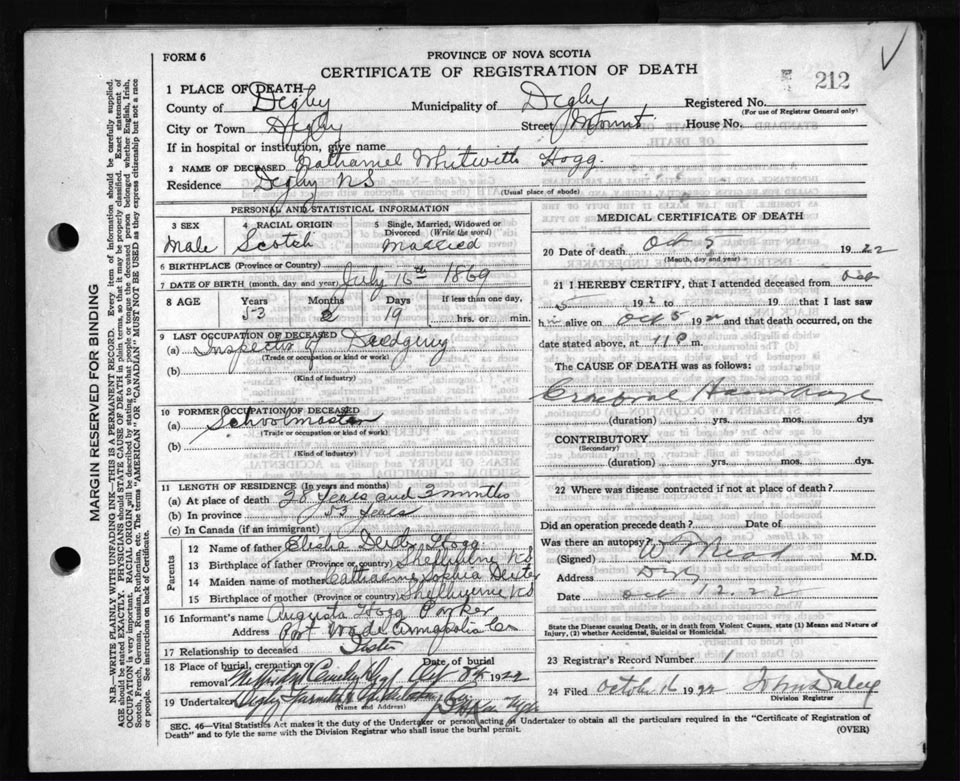 FORM 6
PROVINCE OF NOVA SCOTIA
CERTIFICATE OF REGISTRATION OF DEATH
212
1 PLACE OF DEATH—
County of Digby Municipality of Digby Registered No.
(For use of Registrar General only)
City or Town Digby Street Mount House No.
If in hospital or institution, give name
2 NAME OF DECEASED Nathaniel Whitwith Hogg.
Residence Digby NS
(Usual place of abode)
PERSONAL AND STATISTICAL INFORMATION
3 SEX 4 RACIAL ORIGIN 5 Single, Married, Widowed or Divorced (Write the word)
Male Scotch Married
6 BIRTHPLACE (Province or Country)
7 DATE OF BIRTH (month, day and year) July 16th 1869
8 AGE Years Months Days If less than one day,
53 2 19 hrs. or min.
9 LAST OCCUPATION OF DECEASED
(a) Inspector of Dredging
(Trade or occupation or kind of work)
(b)
(Kind of industry)
10 FORMER OCCUPATION OF DECEASED
(a) Schoolmaster
(Trade or occupation or kind of work)
(b)
(Kind of industry)
11 LENGTH OF RESIDENCE (In years and months)
(a) At place of death 28 Years and 3 months
(b) In province 53 Years
(c) In Canada (if an immigrant)
Parents
12 Name of father Elisha Hogg
13 Birthplace of father (Province or country) Shelburne NS
14 Maiden name of mother Catharine Sophia Dexter
15 Birthplace of mother (Province or country) Shelburne NS
16 Informant's name Augusta Hogg Parker
Address Port Wade Annapolis Co
17 Relationship to deceased Sister
18 Place of burial, cremation or removal Date of burial
Oct 8th 1922
19 Undertaker Digby
(Name and Address)
MEDICAL CERTIFICATE OF DEATH
20 Date of death Oct 5 1922
(Month, day and year)
21 I HEREBY CERTIFY, that I attended deceased from Oct
5 192 to 19 that I last saw
him alive on Oct 5 1922 and that death occurred, on the
date stated above, at 11 P m.
The CAUSE OF DEATH was as follows:
Cerebral Haemorrhage
(duration) yrs. mos. dys
CONTRIBUTORY
(Secondary)
(duration) yrs. mos. dys.
22 Where was disease contracted if not at place of death?
Did an operation precede death? Date of
Was there an autopsy?
(Signed) W Mead M.D.
Address Digby
Date Oct 12.22
State the Disease causing Death, or in death from Violent Causes, state (1) Means and Nature of Injury, (2) whether Accidental, Suicidal or Homicidal.
23 Registrar's Record Number 1
24 Filed October 16 1922 John Daley
Division Registrar
SEC. 46—Vital Statistics Act makes it the duty of the Undertaker or person acting as Undertaker to obtain all the particulars required in the "Certificate of Registration of
Death" and to fyle the same with the Division Registrar who shall issue the burial permit. (OVER)
MARGIN RESERVED FOR BINDING
N.B.—WRITE PLAINLY WITH UNFADING INK—THIS IS A PERMANENT RECORD. Every item of information should be carefully supplied.
AGE should be stated EXACTLY. PHYSICIANS should STATE CAUSE OF DEATH in plain terms, so that it may be properly classified. Exact statement of
OCCUPATION is very important. RACIAL ORIGIN will be described by stating to what people or tongue the deceased person belonged whether English, Irish,
Scotch, French, German, Russian, Ruthenian, etc. The terms "AMERICAN" OR "CANADIAN" MUST NOT BE USED as they express citizenship but not a race
or people. See instructions on back of Certificate.